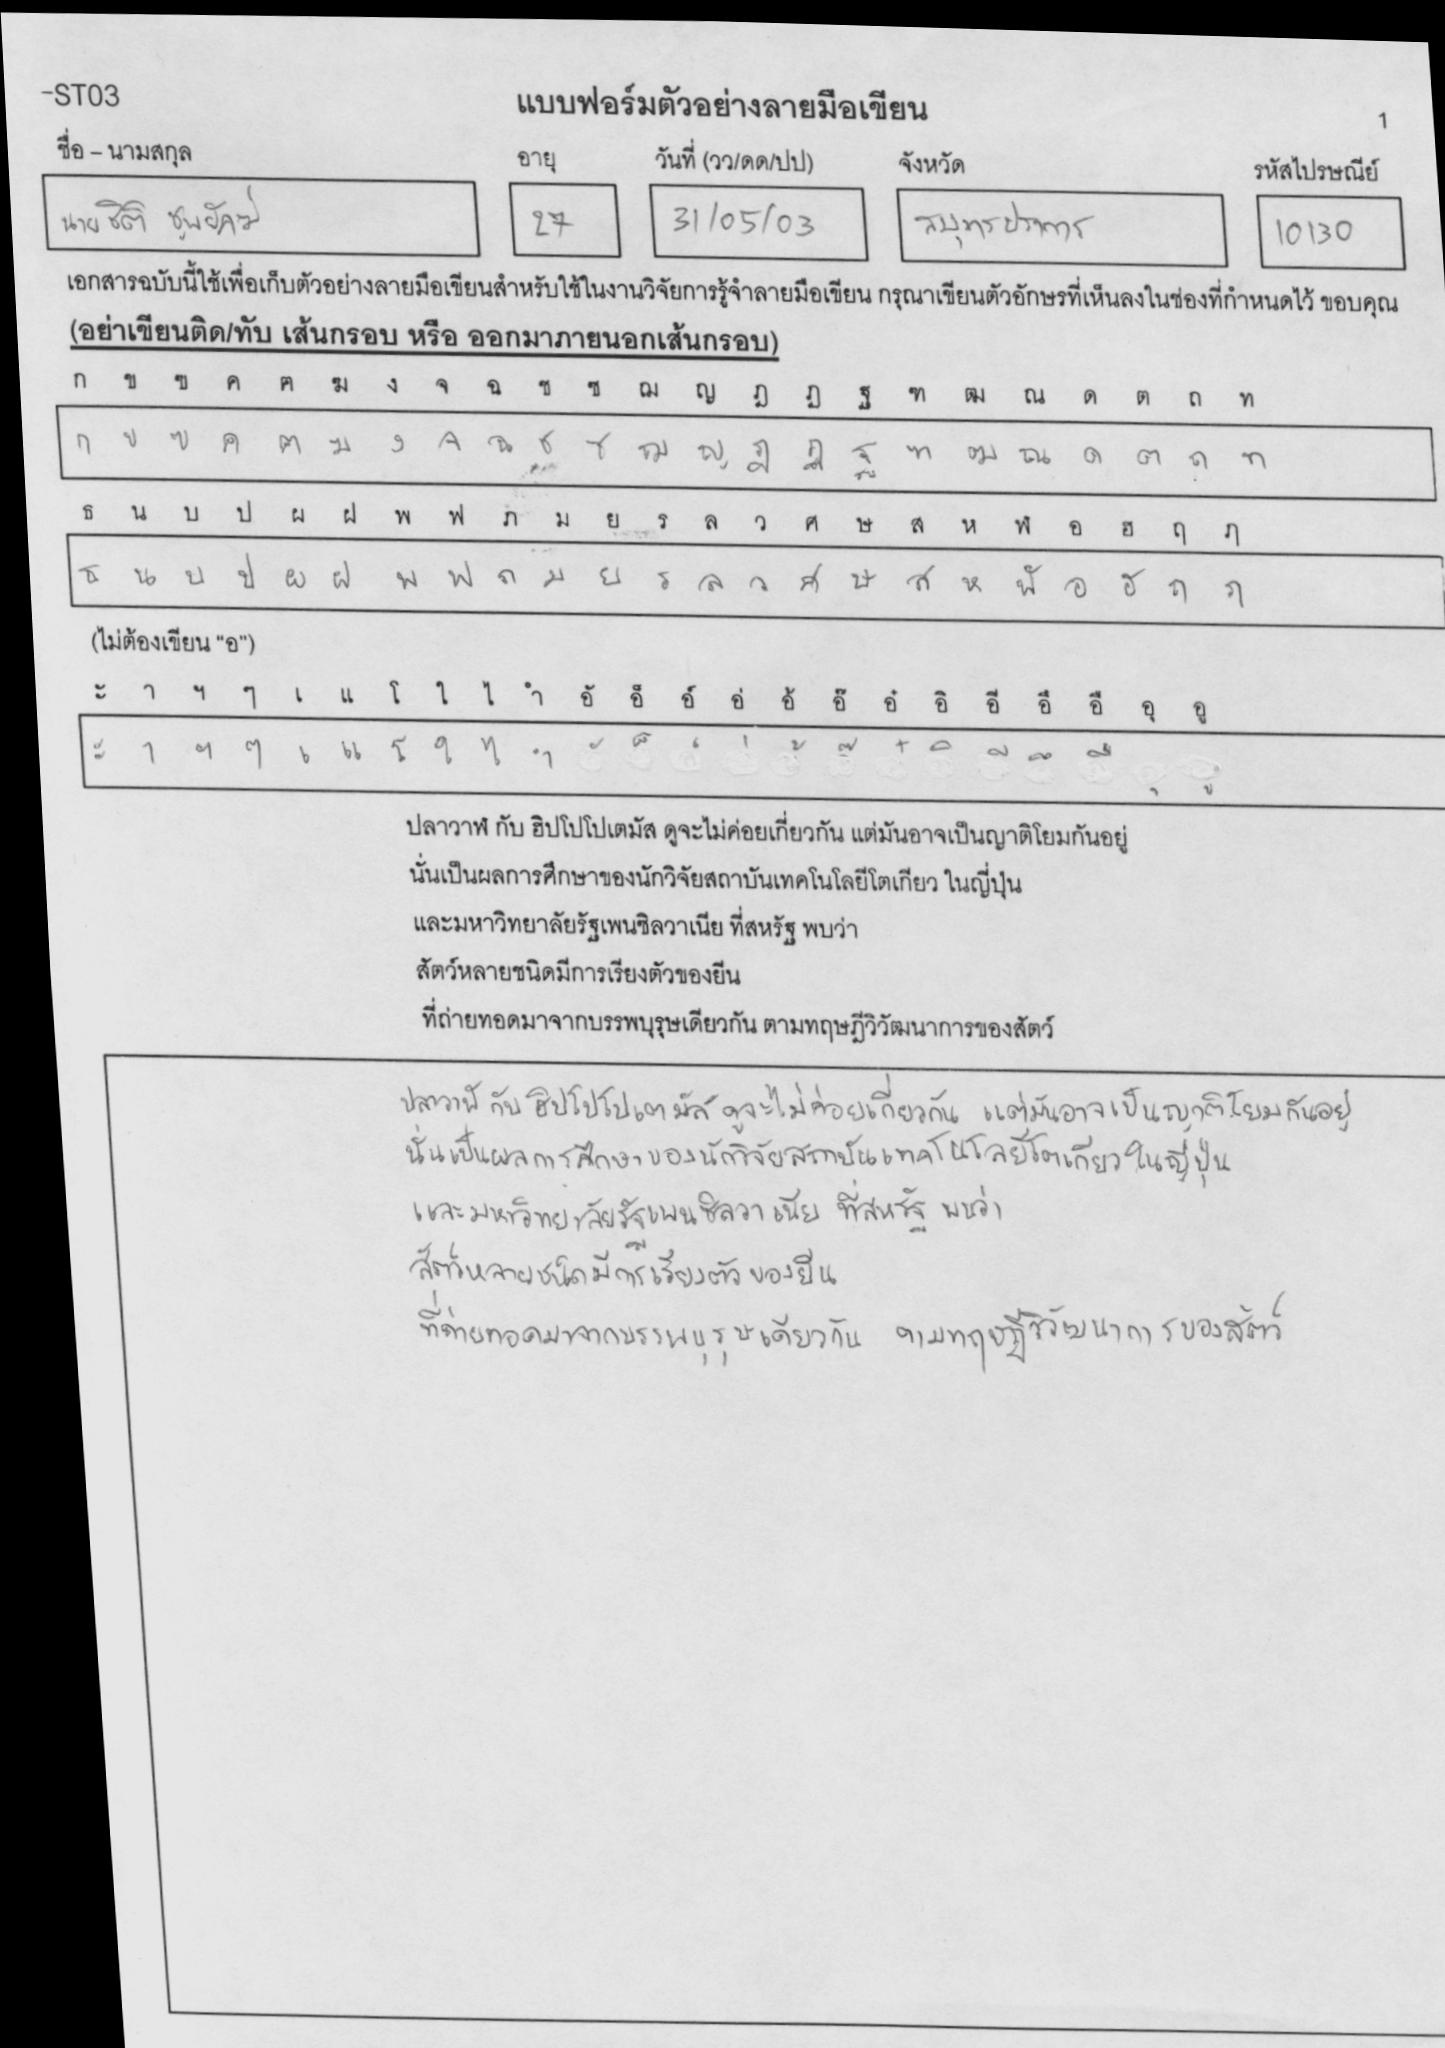 -ST03
แบบฟอร์มตัวอย่างลายมือเขียน
1
ชื่อ – นามสกุล อายุ วันที่ (วว/ดด/ปป) จังหวัด รหัสไปรษณีย์
นายชิติ 27 31/05/03 สมุทรปราการ 10130
เอกสารฉบับนี้ใช้เพื่อเก็บตัวอย่างลายมือเขียนสำหรับใช้ในงานวิจัยการรู้จำลายมือเขียน กรุณาเขียนตัวอักษรที่เห็นลงในช่องที่กำหนดไว้ ขอบคุณ
(อย่าเขียนติด/ทับ เส้นกรอบ หรือ ออกมาภายนอกเส้นกรอบ)
ก ข ฃ ค ฅ ฆ ง จ ฉ ช ซ ฌ ญ ฎ ฏ ฐ ฑ ฒ ณ ด ต ถ ท
ก ข ฃ ค ฅ ฆ ง จ ฉ ช ซ ฌ ญ ฎ ฏ ฐ ฑ ฒ ณ ด ต ถ ท
ธ น บ ป ผ ฝ พ ฟ ภ ม ย ร ล ว ศ ษ ส ห ฬ อ ฮ ฤ ฦ
ธ น บ ป ผ ฝ พ ฟ ภ ม ย ร ล ว ศ ษ ส ห ฬ อ ฮ ฤ ฦ
(ไม่ต้องเขียน "อ")
ะ า ฯ ๆ เ แ โ ใ ไ ำ อั อ็ อ์ อ่ อ้ อ๊ อ๋ อิ อี อึ อื อุ อู
ะ า ฯ ๆ เ แ โ ใ ไ ำ ั ็ ์ ่ ้ ๊ ๋ ิ ี ึ ื ุ ู
ปลาวาฬ กับ ฮิปโปโปเตมัส ดูจะไม่ค่อยเกี่ยวกัน แต่มันอาจเป็นญาติโยมกันอยู่
นั่นเป็นผลการศึกษาของนักวิจัยสถาบันเทคโนโลยีโตเกียว ในญี่ปุ่น
และมหาวิทยาลัยรัฐเพนซิลวาเนีย ที่สหรัฐ พบว่า
สัตว์หลายชนิดมีการเรียงตัวของยีน
ที่ถ่ายทอดมาจากบรรพบุรุษเดียวกัน ตามทฤษฎีวิวัฒนาการของสัตว์
ปลาวาฬ กับ ฮิปโปโปเตมัส ดูจะไม่ค่อยเกี่ยวกัน แต่มันอาจเป็นญาติโยมกันอยู่
นั่นเป็นผลการศึกษาของนักวิจัยสถาบันเทคโนโลยีโตเกียว ในญี่ปุ่น
และมหาวิทยาลัยรัฐเพนซิลวาเนีย ที่สหรัฐ พบว่า
สัตว์หลายชนิดมีการเรียงตัวของยีน
ที่ถ่ายทอดมาจากบรรพบุรุษเดียวกัน ตามทฤษฎีวิวัฒนาการของสัตว์